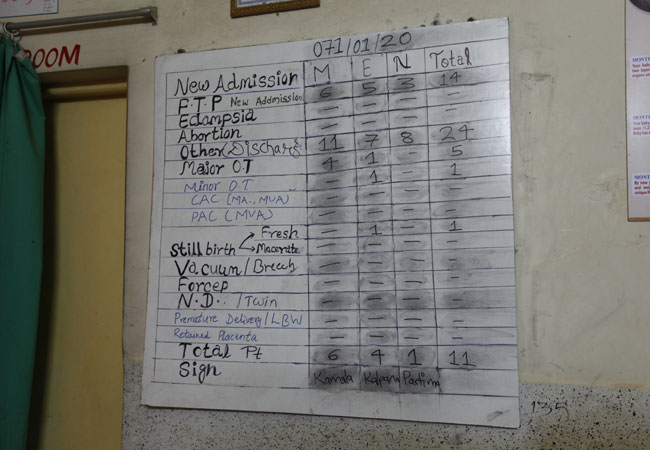 OOM
071/01/20
M E N Total
New Admission 6 5 3 14
F.T.P New Addmission - - - -
Edampsia - - - -
Abortion - - - -
Other (Discharg 11 7 8 24
Major O.T 4 1 - 5
Minor O.T - 1 - 1
CAC (MA., MVA) - - - -
PAC (MVA) - - - -
Still birth Fresh - 1 - 1
Macerate - - - -
Vacuum/Breech - - - -
Forcep - - - -
N.D../Twin - - - -
Premature Delivery/LBW - - - -
Retained Placenta - - - -
Total Pt 6 4 1 11
Sign Kamala Kalpana Padima
135